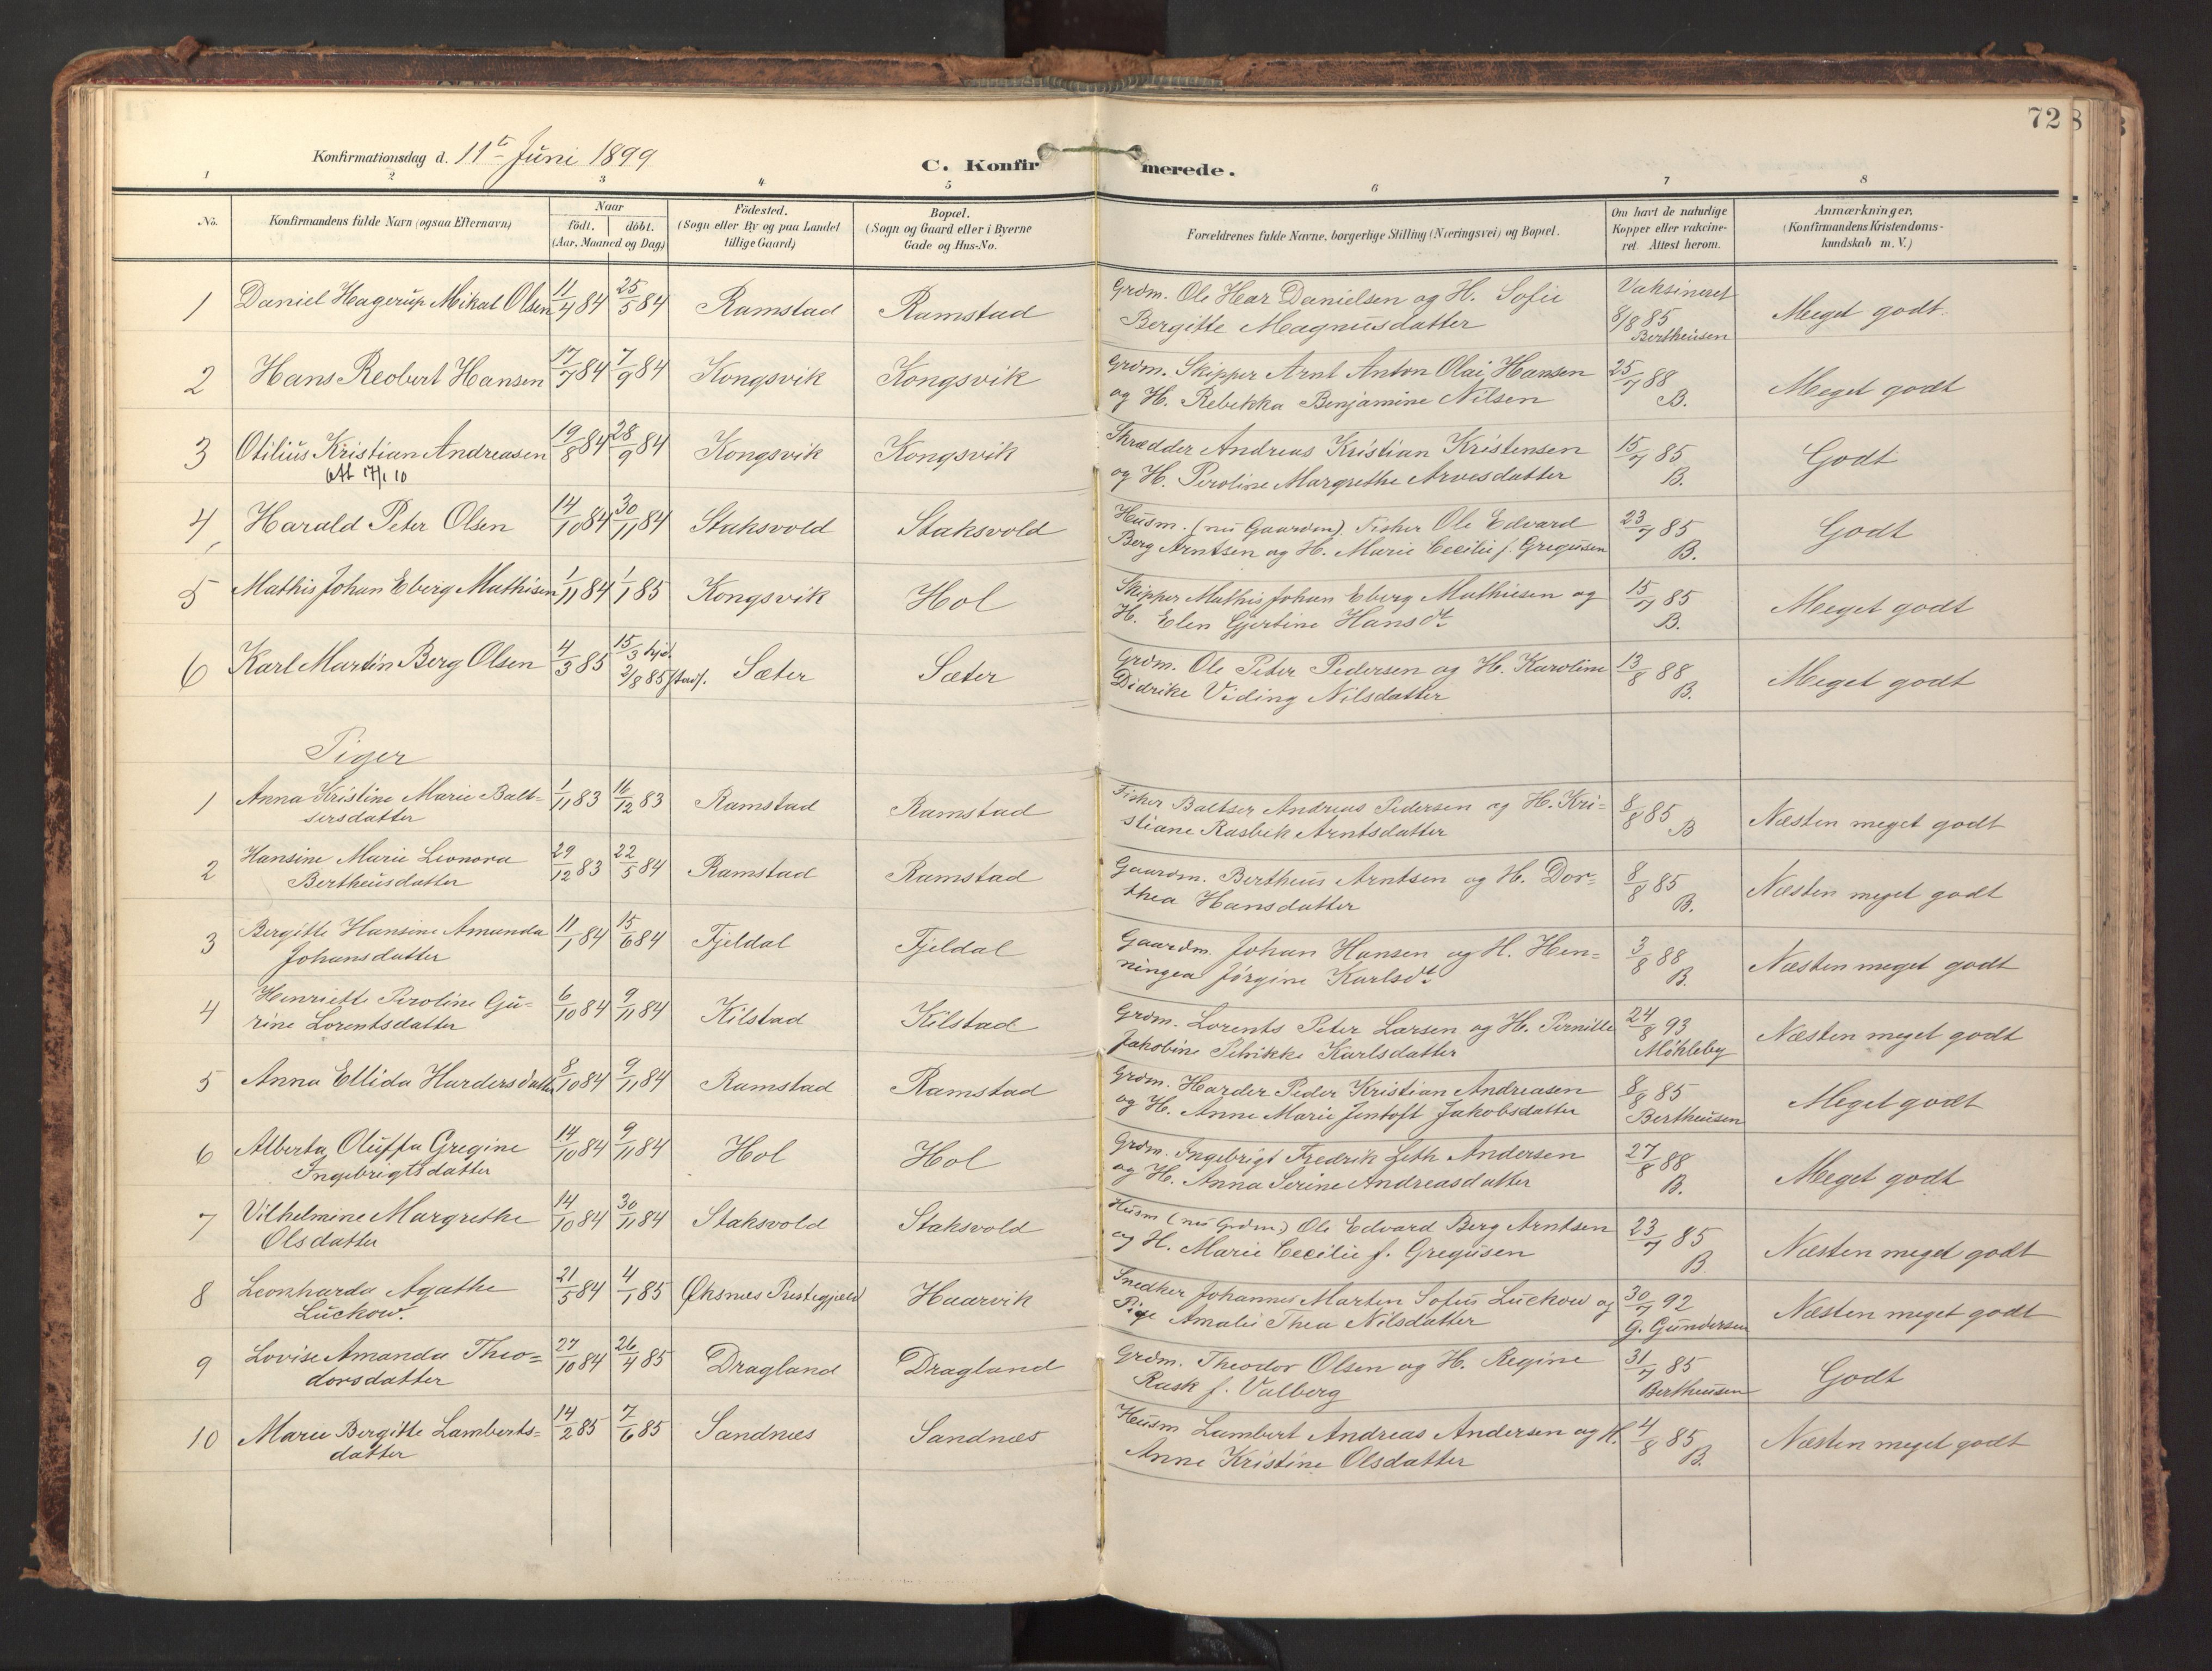 72
Konfirmationsdag d. 11te Juni 1899
C. Konfirmerede.
1 2 3 4 5 6 7 8
No. Konfirmandens fulde Navn (ogsaa Efternavn) Naar født. døbt. (Aar, Maaned og Dag) Fødested. (Sogn eller By og paa Landet tillige Gaard) Bopæl. (Sogn og Gaard eller i Byerne Gade og Hus-No. Forældrenes fulde Navne, borgerlige Stilling (Næringsvei) og Bopæl. Om havt de naturlige Kopper eller vakcineret. Attest herom. Anmærkninger. (Konfirmandens Kristendomskundskab m. V.)
1 Daniel Hagerup Mikal Olsen 11/4 84 25/5 84 Ramstad Ramstad Grdm. Ole Hear Danielsen og H. Sofie Vaksineret Meget godt.
Bergitte Magnusdatter 8/8 85 Bertheusen
2 Hans Reobert Hansen 17/7 84 7/9 84 Kongsvik Kongsvik Grdm. Skipper Arnt Anton Olai Hansen 25/7 88 Meget godt
og H. Rebekka Benjamine Nilsen B.
3 Otilius Kristian Andreasen 19/8 84 28/9 84 Kongsvik Kongsvik Skrædder Andreas Kristian Kristensen 15/7 85 Godt
Att 17/1 10 og H. Peroline Margrethe Arvesdatter B.
4 Harald Peter Olsen 14/10 84 30/11 84 Staksvold Staksvold Husm. (nu Gaardm). Fisker Ole Edvard 23/7 85 Godt
Berg Arntsen og H. Marie Cecilie f. Gregusen B.
5 Mathis Johan Eberg Mathisen 1/11 84 1/1 85 Kongsvik Hol Skipper Mathis Johan Eberg Mathisen og 15/7 85 Meget godt
H. Elen Gjertine Hansdt. B.
6 Karl Martin Berg Olsen 4/3 85 15/3 hjd. 2/8 85 stadf. Sæter Sæter Grdm. Ole Peter Pedersen og H. Karoline 13/8 88 Meget godt
Didrike Viding Nilsdatter B.
Piger
1 Anna Kristine Marie Balt= 1/11 83 16/12 83 Ramstad Ramstad Fisker Baltser Andreas Pedersen og H. Kri= 8/8 85 Næsten meget godt
sersdatter stiane Rasbek Arntsdatter B
2 Hansine Marie Leonora 29/12 83 22/5 84 Ramstad Ramstad Gaardm. Bertheus Arntsen og H. Dor= 8/8 85 Næsten meget godt
Bertheusdatter thea Hansdatter B.
3 Bergitte Hansine Amanda 11/1 84 15/6 84 Fjeldal Fjeldal Gaardm. Johan Hansen og H. Hen= 3/8 88 Næsten meget godt
Johansdatter ningea Jørgine Karlsdt. B.
4 Henriette Peroline Gu= 6/10 84 9/11 84 Kilstad Kilstad Grdm. Lorents Peter Larsen og H. Pernille 24/8 93 Næsten meget godt
rine Lorentsdatter Jakobine Petrikke Karlsdatter Møkleby
5 Anna Ellida Hardersdatter 8/10 84 9/11 84 Ramstad Ramstad Grdm. Harder Peder Kristian Andreasen 8/8 85 Meget godt
og H. Anne Marie Jentoft Jakobsdatter Bertheusen
6 Alberta Oluffa Gregine 14/10 84 9/11 84 Hol Hol Grdm. Ingebrigt Fredrik Leth Andersen 27/8 88 Meget godt
Ingebrigtsdatter og H. Anna Serine Andreasdatter B.
7 Vilhelmine Margrethe 14/10 84 30/11 84 Staksvold Staksvold Husm (nu Grdm.) Ole Edvard Berg Arntsen 23/7 85 Næsten meget godt
Olsdatter og H. Marie Cecilie f. Gregusen B.
8 Leonharda Agathe 21/5 84 4/1 85 Øksnes Prestegjeld Haarvik Snedker Johannes Marten Sofus Luckow og 30/7 92 Næsten meget godt
Luckow. Pige Amalie Thea Nilsdatter G. Gundersen
9 Lovise Amanda Theo= 27/10 84 26/4 85 Dragland Dragland Grdm. Theodor Olsen og H. Regine 31/7 85 Godt
dorsdatter Rask f. Valberg Bertheusen
10 Marie Bergitte Lamberts= 14/2 85 7/6 85 Sandnes Sandnes Husm Lambert Andreas Andersen og H. 4/8 85 Næsten meget godt
datter Anne Kristine Olsdatter B.